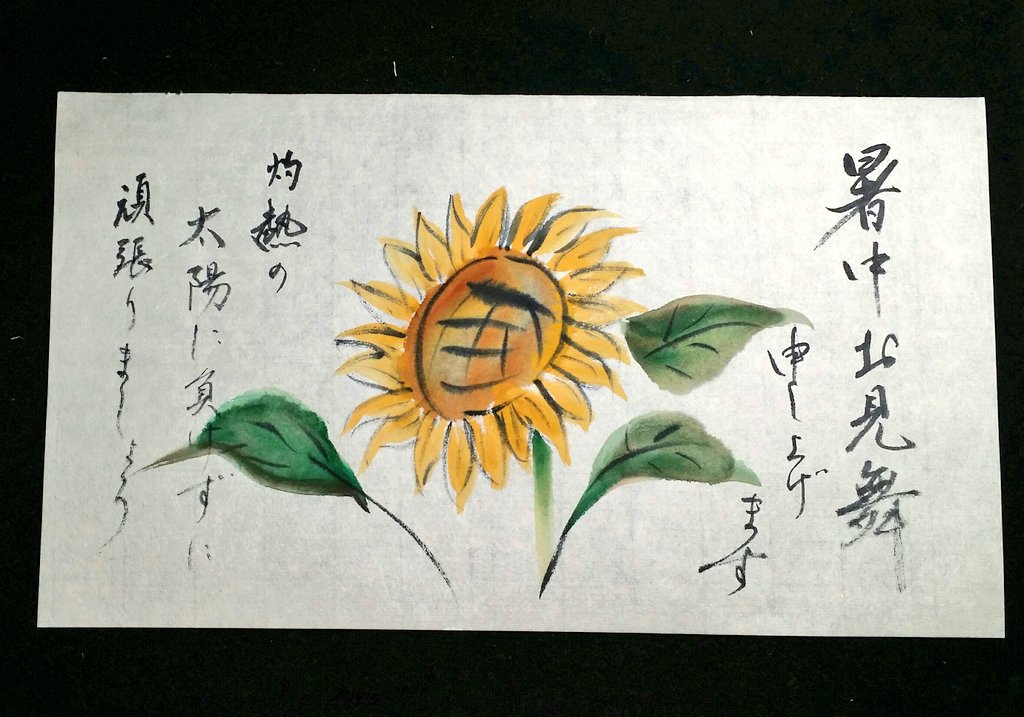 暑中お見舞
申し上げ
ます
灼熱の
太陽に負けずに
頑張りましょう